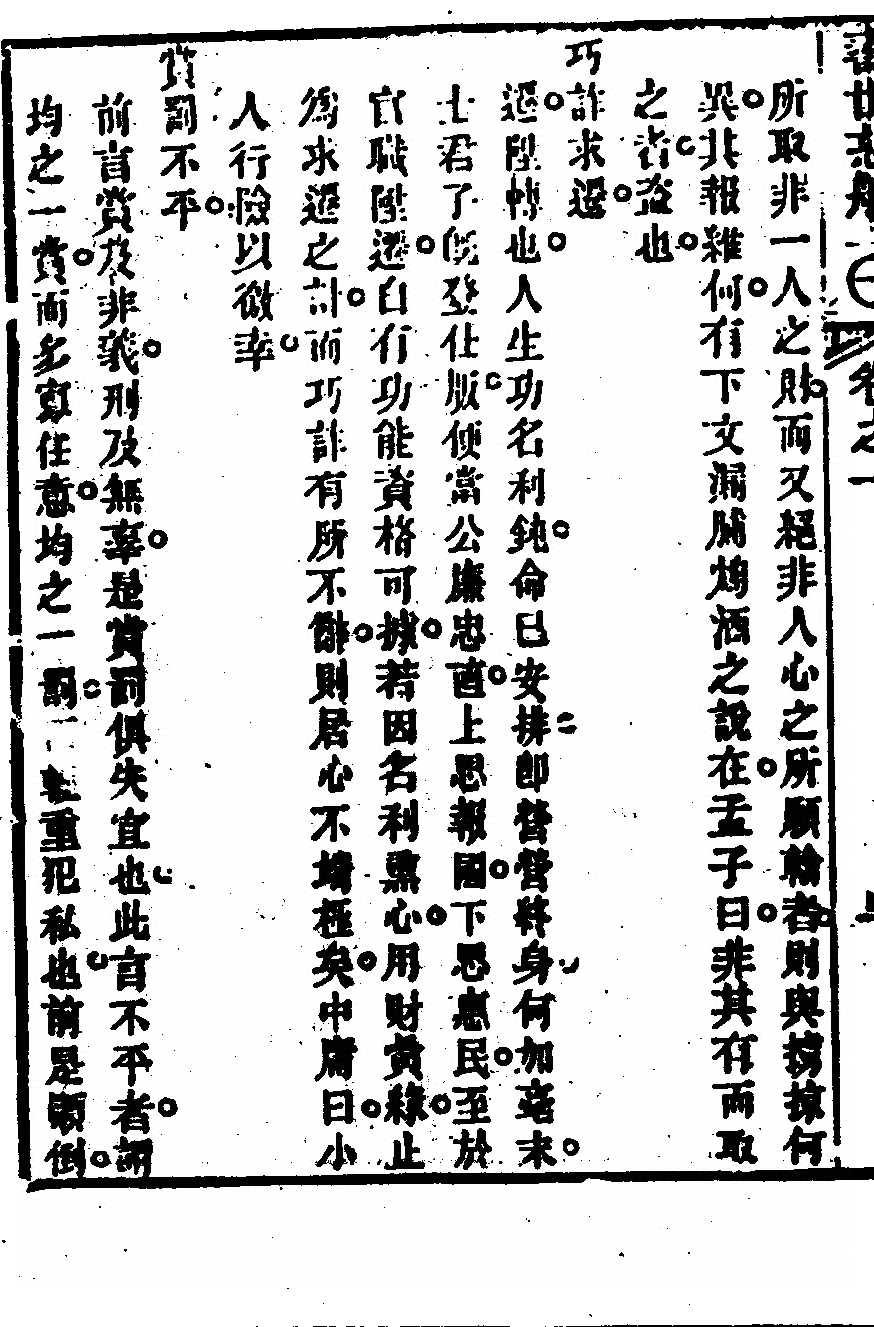 卷之一
所取非一人之財而又絕非人心之所願輸者則與擄掠何
異其報雖何有下文漏脯鴆酒之說在孟子曰非其有而取
之者盜也
巧詐求遷
遷陞轉也人生功名利鈍命已安排卽營營終身何加毫末
士君子旣登仕版便當公廉忠直上思報國下思惠民至於
官職陞遷自有功能資格可據若因名利熏心用財貪緣止
爲求遷之計而巧詐有所不辭則居心不堪極矣中庸曰小
人行險以徼幸
賞罰不平
前言賞及非義刑及無辜是賞罰俱失宜也此言不平者謂
均之一賞而多寡任意均之一罰 輕重犯私也前是顚倒